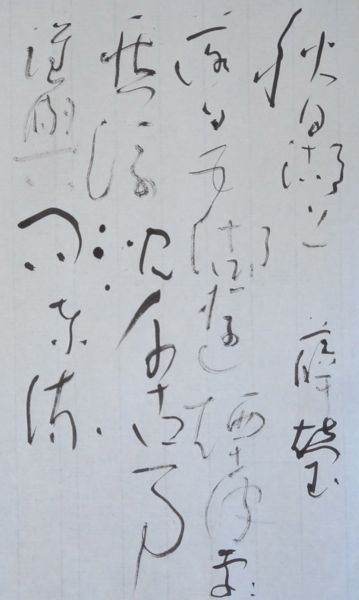 秋日湖上 薛瑩
落日五湖遊煙波處々
愁浮沈千古事
誰與問東流